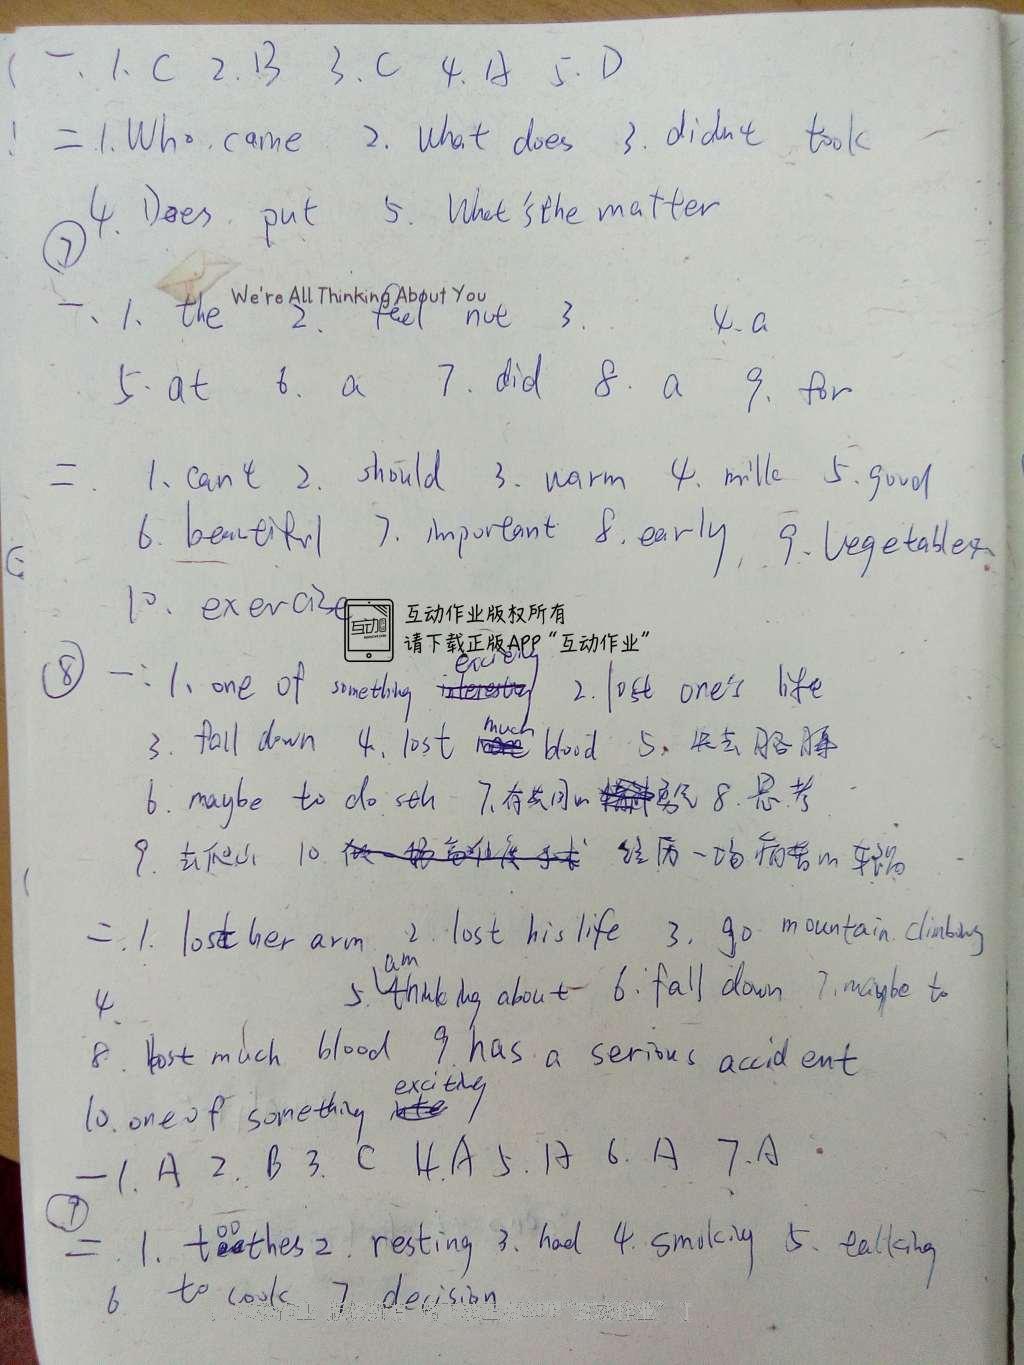 一. 1. C 2. B 3. C 4. A 5. D
二 1. Who. came 2. What does 3. didn't took
4. Does put 5. What's the matter
⑦
We're All Thinking About You
一、1. the 2. feel not 3. 4. a
5. at 6. a 7. did 8. a 9. for
二. 1. can't 2. should 3. warm 4. milk 5. good
6. beautiful 7. important 8. early 9. Vegetables
10. exercise
互动作业版权所有
请下载正版APP“互动作业”
⑧ 一: 1. one of something exciting 2. lost one's life
3. fall down 4. lost much blood 5. 失去胳膊
6. maybe to do sth 7. 有共同 8. 思考
9. 去爬山 10. 经历一场
二. 1. lost her arm 2. lost his life 3. go mountain climbing
4. 5. am thinking about 6. fall down 7. maybe to
8. lost much blood 9. has a serious accident
10. one of something exciting
一 1. A 2. B 3. C 4. A 5. A 6. A 7. A
⑨
二. 1. toothes 2. resting 3. had 4. smoking 5. talking
6 to cook 7. decision